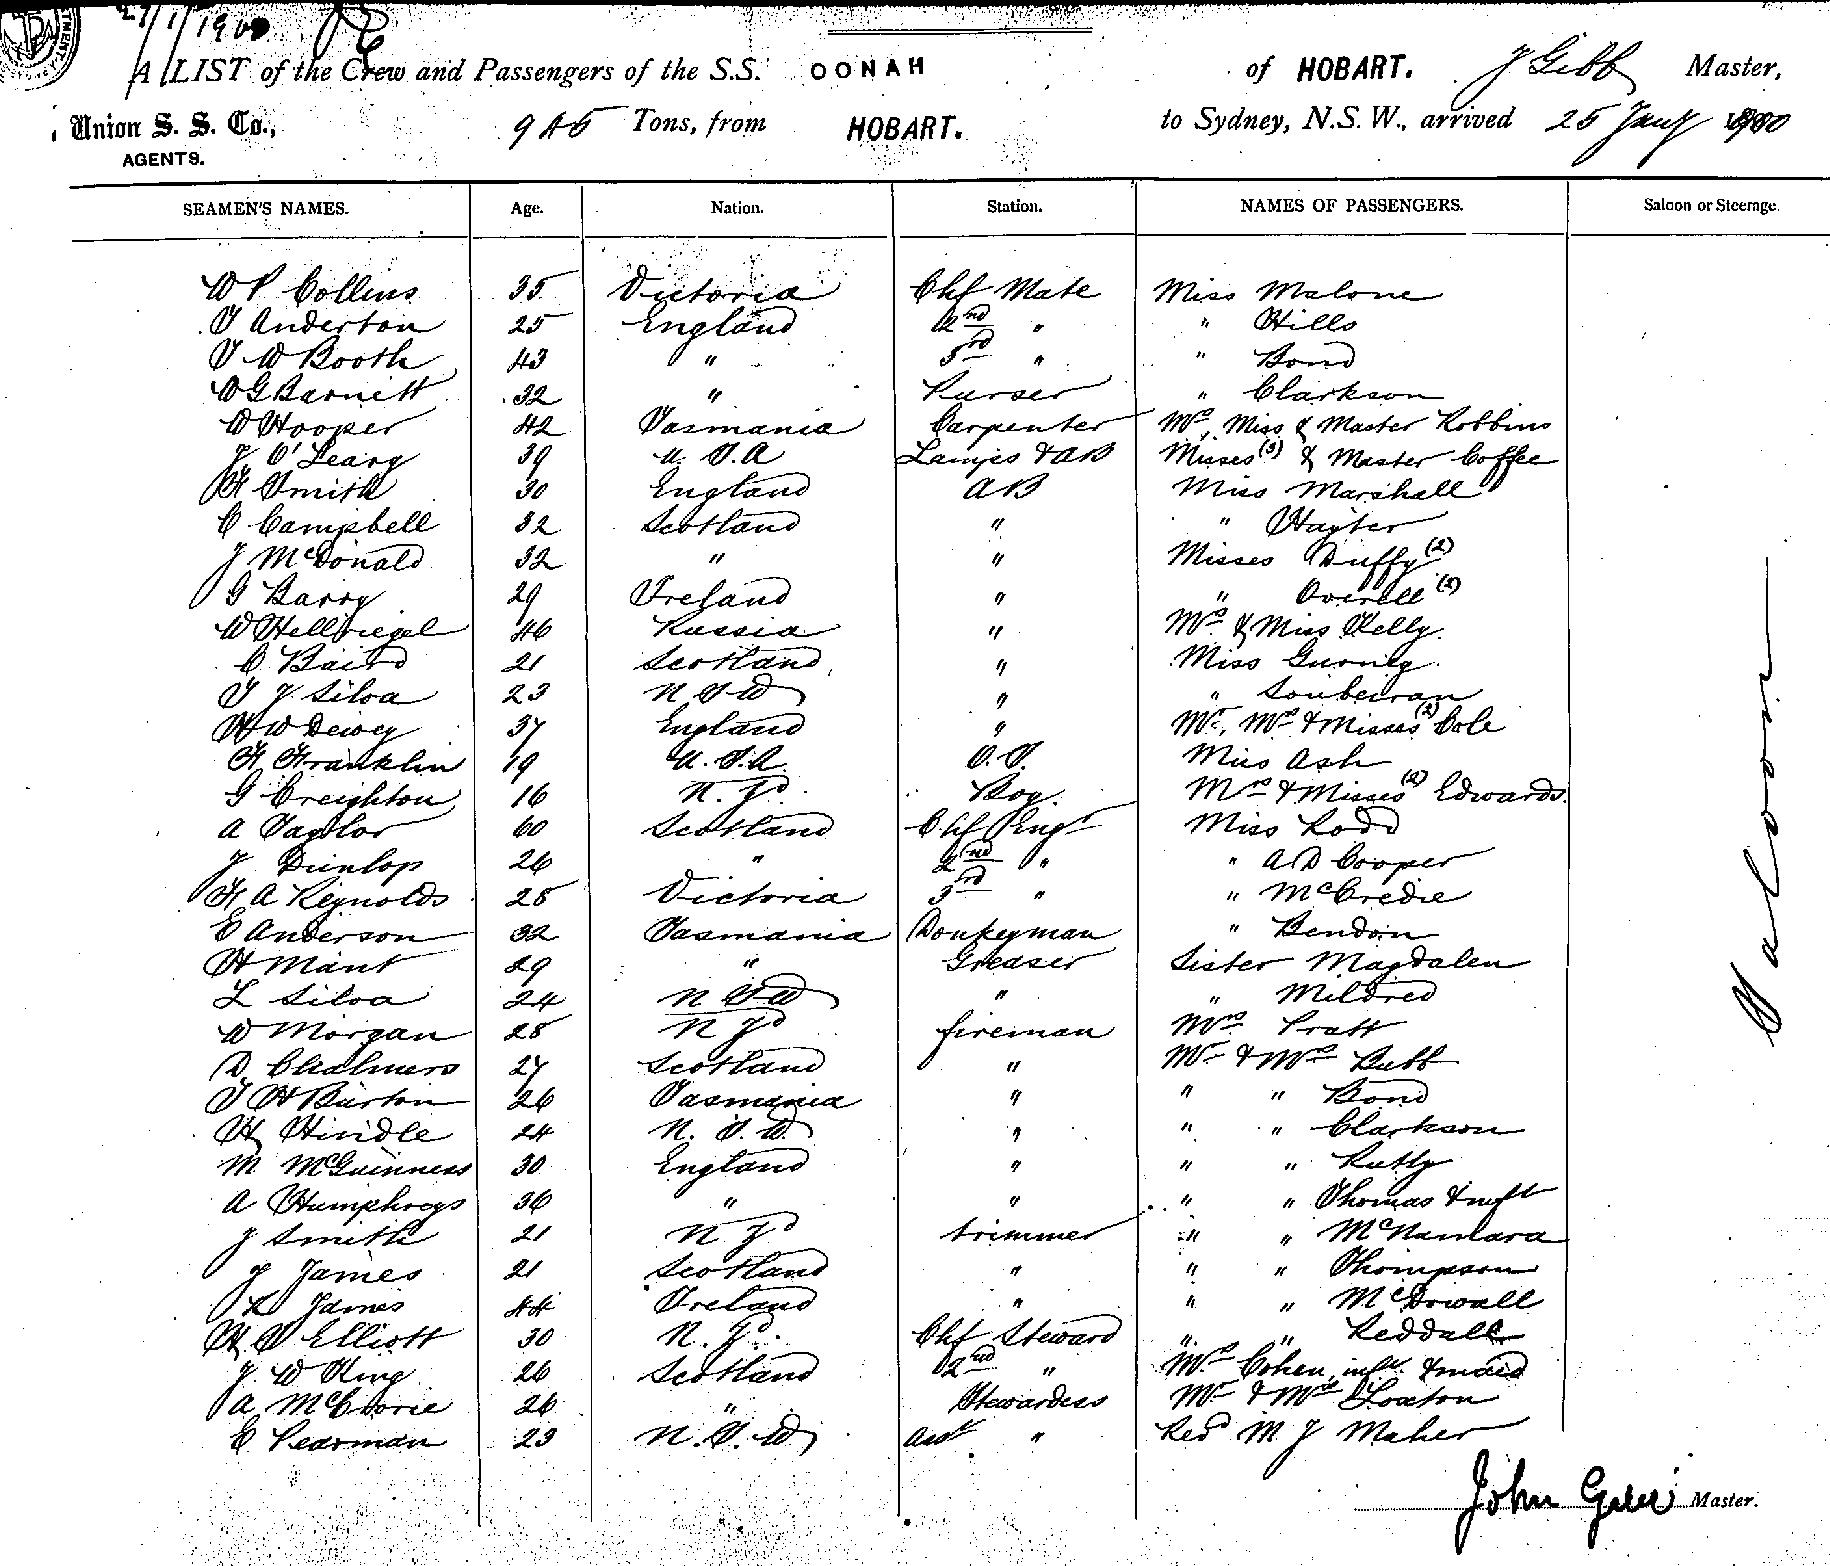 27/1/1900
A LIST of the Crew and Passengers of the S.S. OONAH of HOBART. J Gibb Master,
Union S. S. Co., AGENTS. 945 Tons, from HOBART. to Sydney, N.S.W., arrived 25 Jany 1900
SEAMEN'S NAMES. Age. Nation. Station. NAMES OF PASSENGERS. Saloon or Steerage.
W P Collins 35 Victoria Chf Mate Miss Malone
T Anderton 25 England 2nd " " Hills
T W Booth 43 " 3rd " " Bond
W G Barnett 32 " Purser " Clarkson
W Hooper 42 Tasmania Carpenter Mrs, Miss & Master Robbins
J O'Leary 39 U.S.A Lamps & AB Misses (3) & Master Coffee
H Smith 30 England AB Miss Marshall
C Campbell 32 Scotland " " Hayter
J McDonald 32 " " Misses Duffy (2)
G Barry 29 Ireland " " Overell (2)
W Hellriegel 46 Russia " Mrs & Miss Kelly
C Baird 21 Scotland " Miss Gurney
T J Silva 23 N S W " " Souberran
H W Dewey 37 England " Mr, Mrs & Misses (2) Cole
H Franklin 19 U.S.A. O.S. Miss Ash
G Creighton 16 N.Zd. Boy. Mrs & Misses (2) Edwards
A Taylor 60 Scotland Chf Engr Miss Rodd
J Dunlop 26 " 2nd " " A D Cooper
H A Reynolds 28 Victoria 3rd " " McCredie
E Anderson 32 Tasmania Donkeyman " Bendon
H Mant 29 " Greaser Sister Magdalen
L Silva 24 N S W " " Mildred
W Morgan 28 N Zd fireman Mrs Pratt
D Chalmers 27 Scotland " Mr & Mrs Bubb
T H Burton 26 Tasmania " " " Bond
H Hindle 24 N. S. W. " " " Clarkson
M McGuinness 30 England " " " Rutty
A Humphreys 36 " " " " Thomas & inft
J Smith 21 N Zd trimmer " " McNamara
J James 21 Scotland " " " Thompson
L James 44 Ireland " " " McDowall
H S Elliott 30 N.Zd. Chf Steward " " Reddall
J. W King 26 Scotland 2nd " Mrs Cohen, inft. & maid
A McCrorie 26 " Stewardess Mr & Mrs Loxton
E Pearman 23 N.S.W. Asst " Revd M J Maher
Saloon
John Gibb Master.